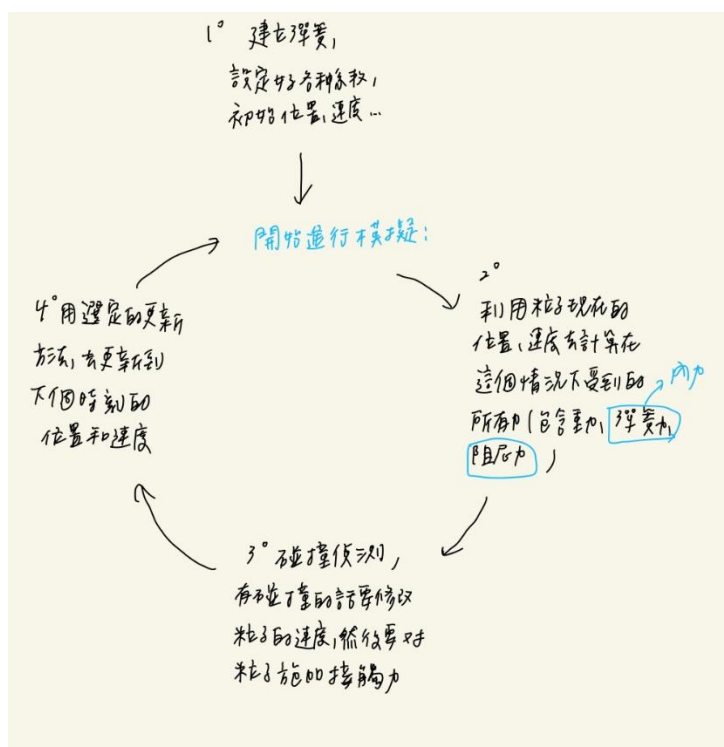 1° 建立彈簧,
設定好各種係數,
初始位置、速度...
開始進行模擬:
2°
利用粒子現在的
位置、速度去計算在
這個情況下受到的
所有力(包含重力、彈簧力、
內力
阻尼力)
3° 碰撞偵測,
有碰撞的話要修改
粒子的速度,然後要對
粒子施加接觸力
4° 用選定的更新
方法,去更新到
下個時刻的
位置和速度